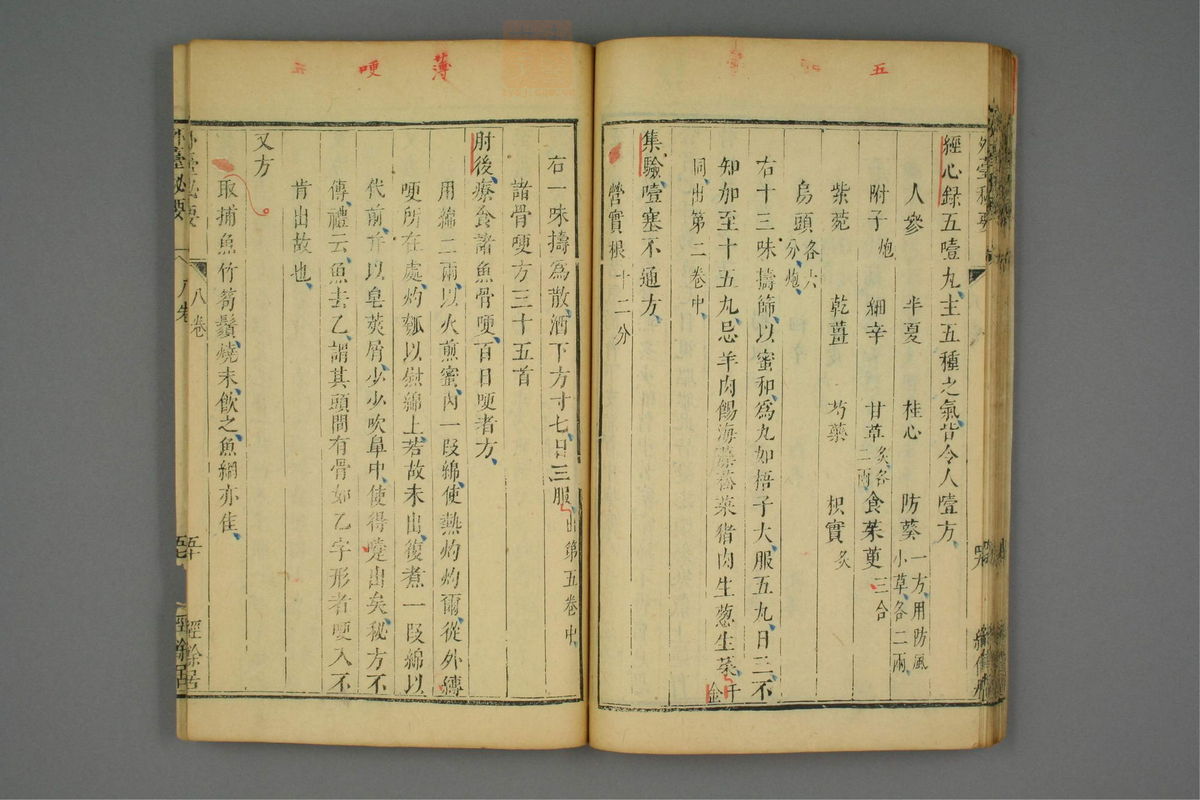 五
經心録五噎丸主五種之氣皆令人噎方
人參 半夏 桂心 防葵一方用防風小草各二兩
附子炮 細辛 甘草炙各二兩 食茱萸三合
紫菀 乾薑 芍藥 枳實炙
烏頭各六分炮
右十三味擣篩以蜜和為丸如梧子大服五丸日三不
知加至十五丸忌羊肉餳海藻菘菜猪肉生葱生菜千金
同出第二卷中
集驗噎塞不通方
營實根十二分
薄 哽 五
右一味擣為散酒下方寸七日三服出第五卷中
諸骨哽方三十五首
肘後療食諸魚骨哽百日哽者方
用綿二兩以火煎蜜內一段綿使熱灼灼爾從外縳
哽所在處灼瓠以熨綿上若故未出復煮一段綿以
代前并以皂莢屑少少吹鼻中使得嚏出矣秘方不
傳禮云魚去乙謂其頭間有骨如乙字形者哽入不
肯出故也
又方
取捕魚竹笱鬚燒末飲之魚網亦佳
外臺秘要 八卷 經餘居